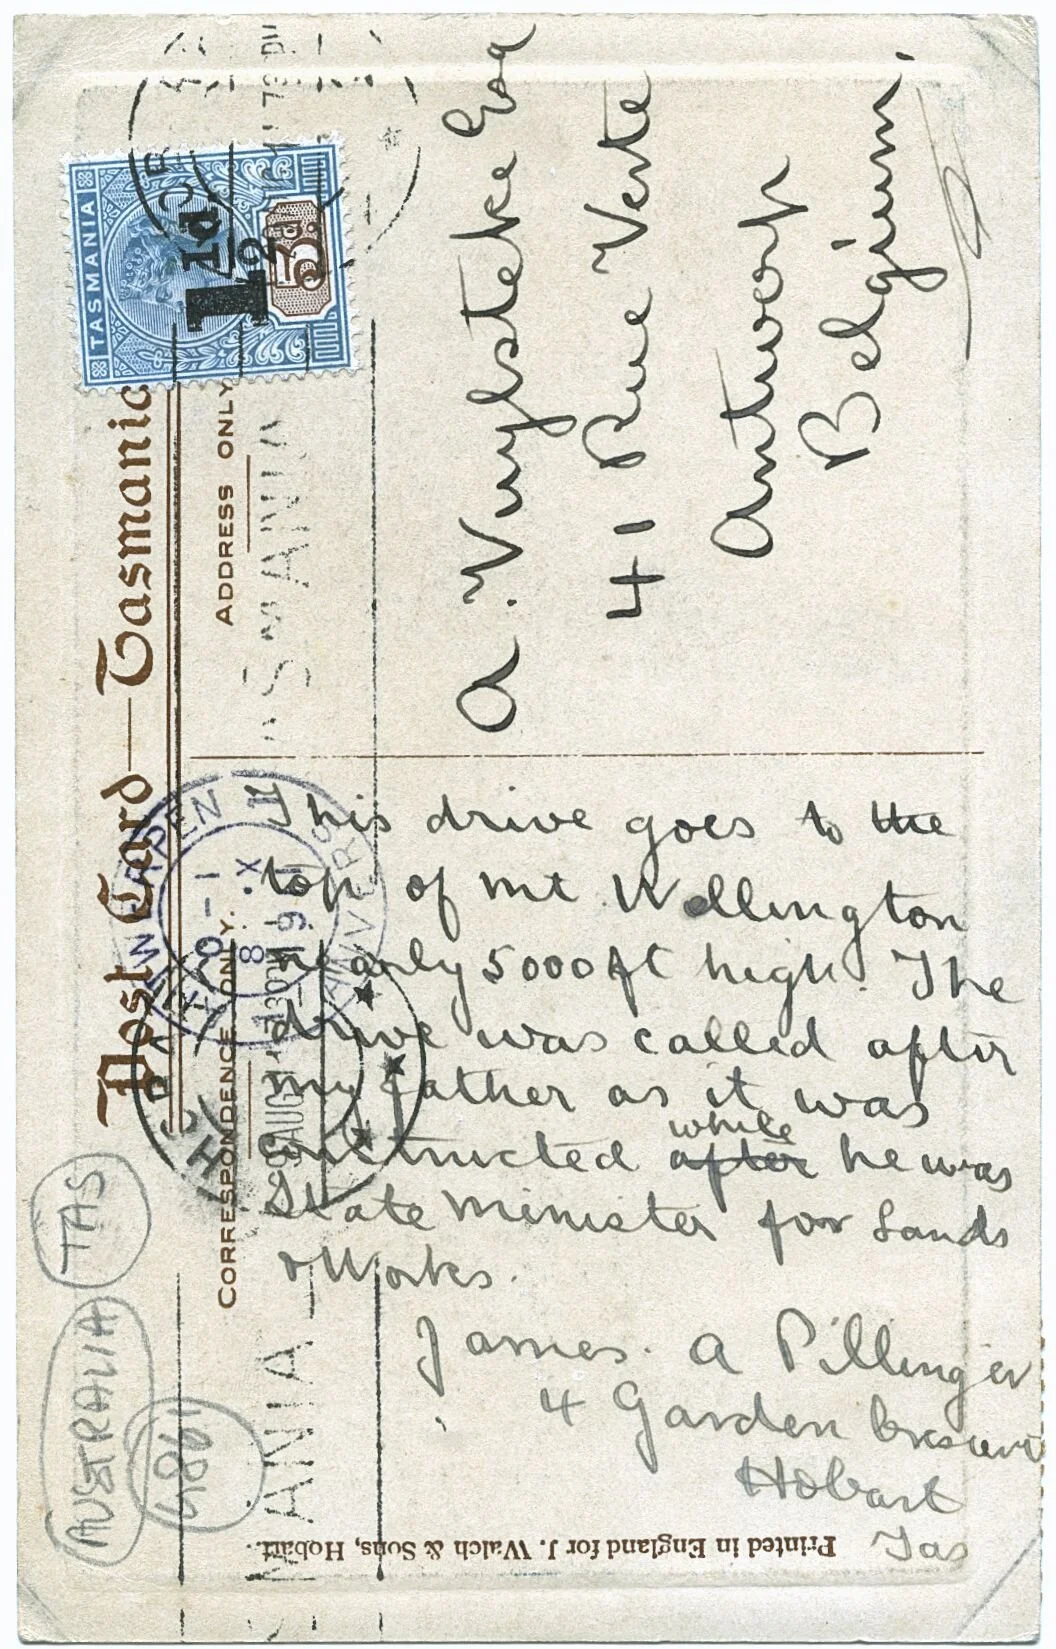 Post Card — Tasmania
CORRESPONDENCE ONLY.
ADDRESS ONLY
TASMANIA
1½d
5d
This drive goes to the
top of Mt Wellington
nearly 5000 ft high. The
drive was called after
my father as it was
while
constructed after he was
State Minister for Lands
& Works.
James. A Pillinger
4 Garden Crescent
Hobart
Tas
A. Vuylsteke Esq
41 Rue Verte
Antwerp
Belgium.
ANTWERPEN
ANVERS
8.X
TASMANIA
AUSTRALIA
TAS
Printed in England for J. Walch & Sons, Hobart.